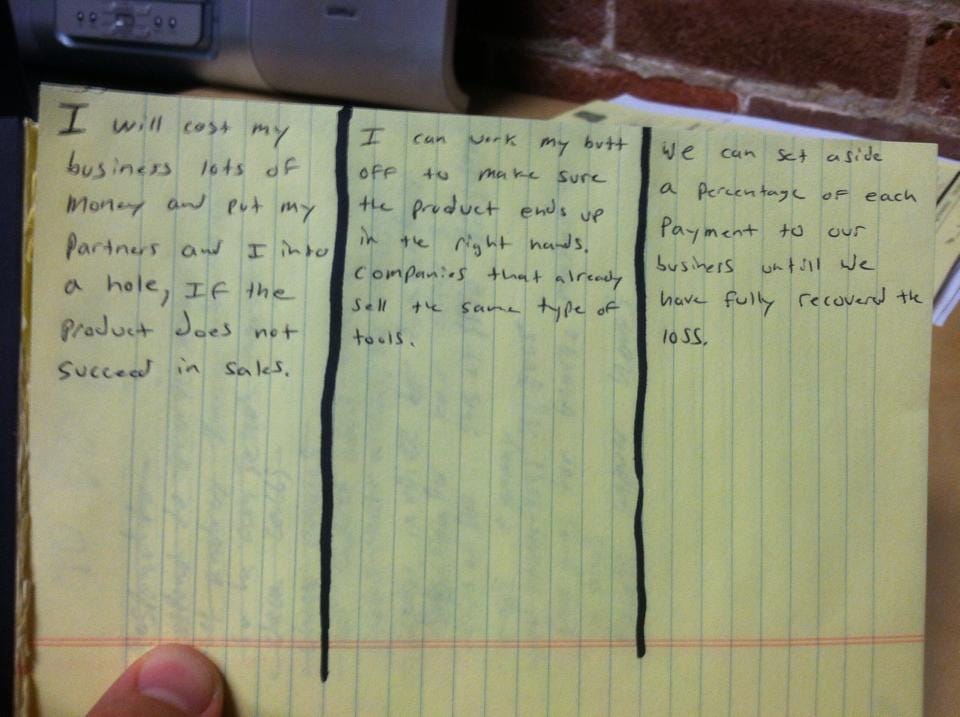 I will cost my
business lots of
money and put my
partners and I into
a hole, If the
product does not
succeed in sales.
I can work my butt
off to make sure
the product ends up
in the right hands.
Companies that already
sell the same type of
tools.
We can set aside
a percentage of each
payment to our
business untill we
have fully recovered the
loss.